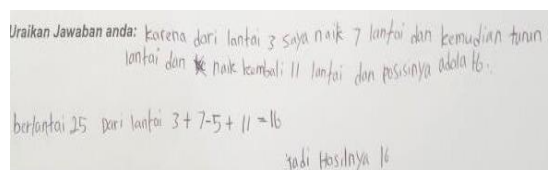 Uraikan Jawaban anda: Karena dari lantai 3 saya naik 7 lantai dan kemudian turun
lantai dan naik kembali 11 lantai dan posisinya adala 16.
berlantai 25 Dari lantai 3 + 7-5 + 11 = 16
Jadi Hasilnya 16